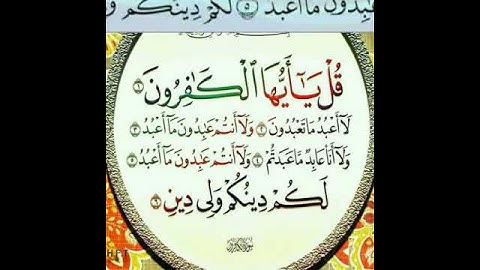 مَآ أَعْبُدُ ٥ لَكُمْ دِينُكُمْ
قُلْ يَٰٓأَيُّهَا ٱلْكَٰفِرُونَ ١
لَآ أَعْبُدُ مَا تَعْبُدُونَ ٢ وَلَآ أَنتُمْ عَٰبِدُونَ مَآ أَعْبُدُ ٣
وَلَآ أَنَا۠ عَابِدٌ مَّا عَبَدتُّمْ ٤ وَلَآ أَنتُمْ عَٰبِدُونَ مَآ أَعْبُدُ ٥
لَكُمْ دِينُكُمْ وَلِىَ دِينِ ٦